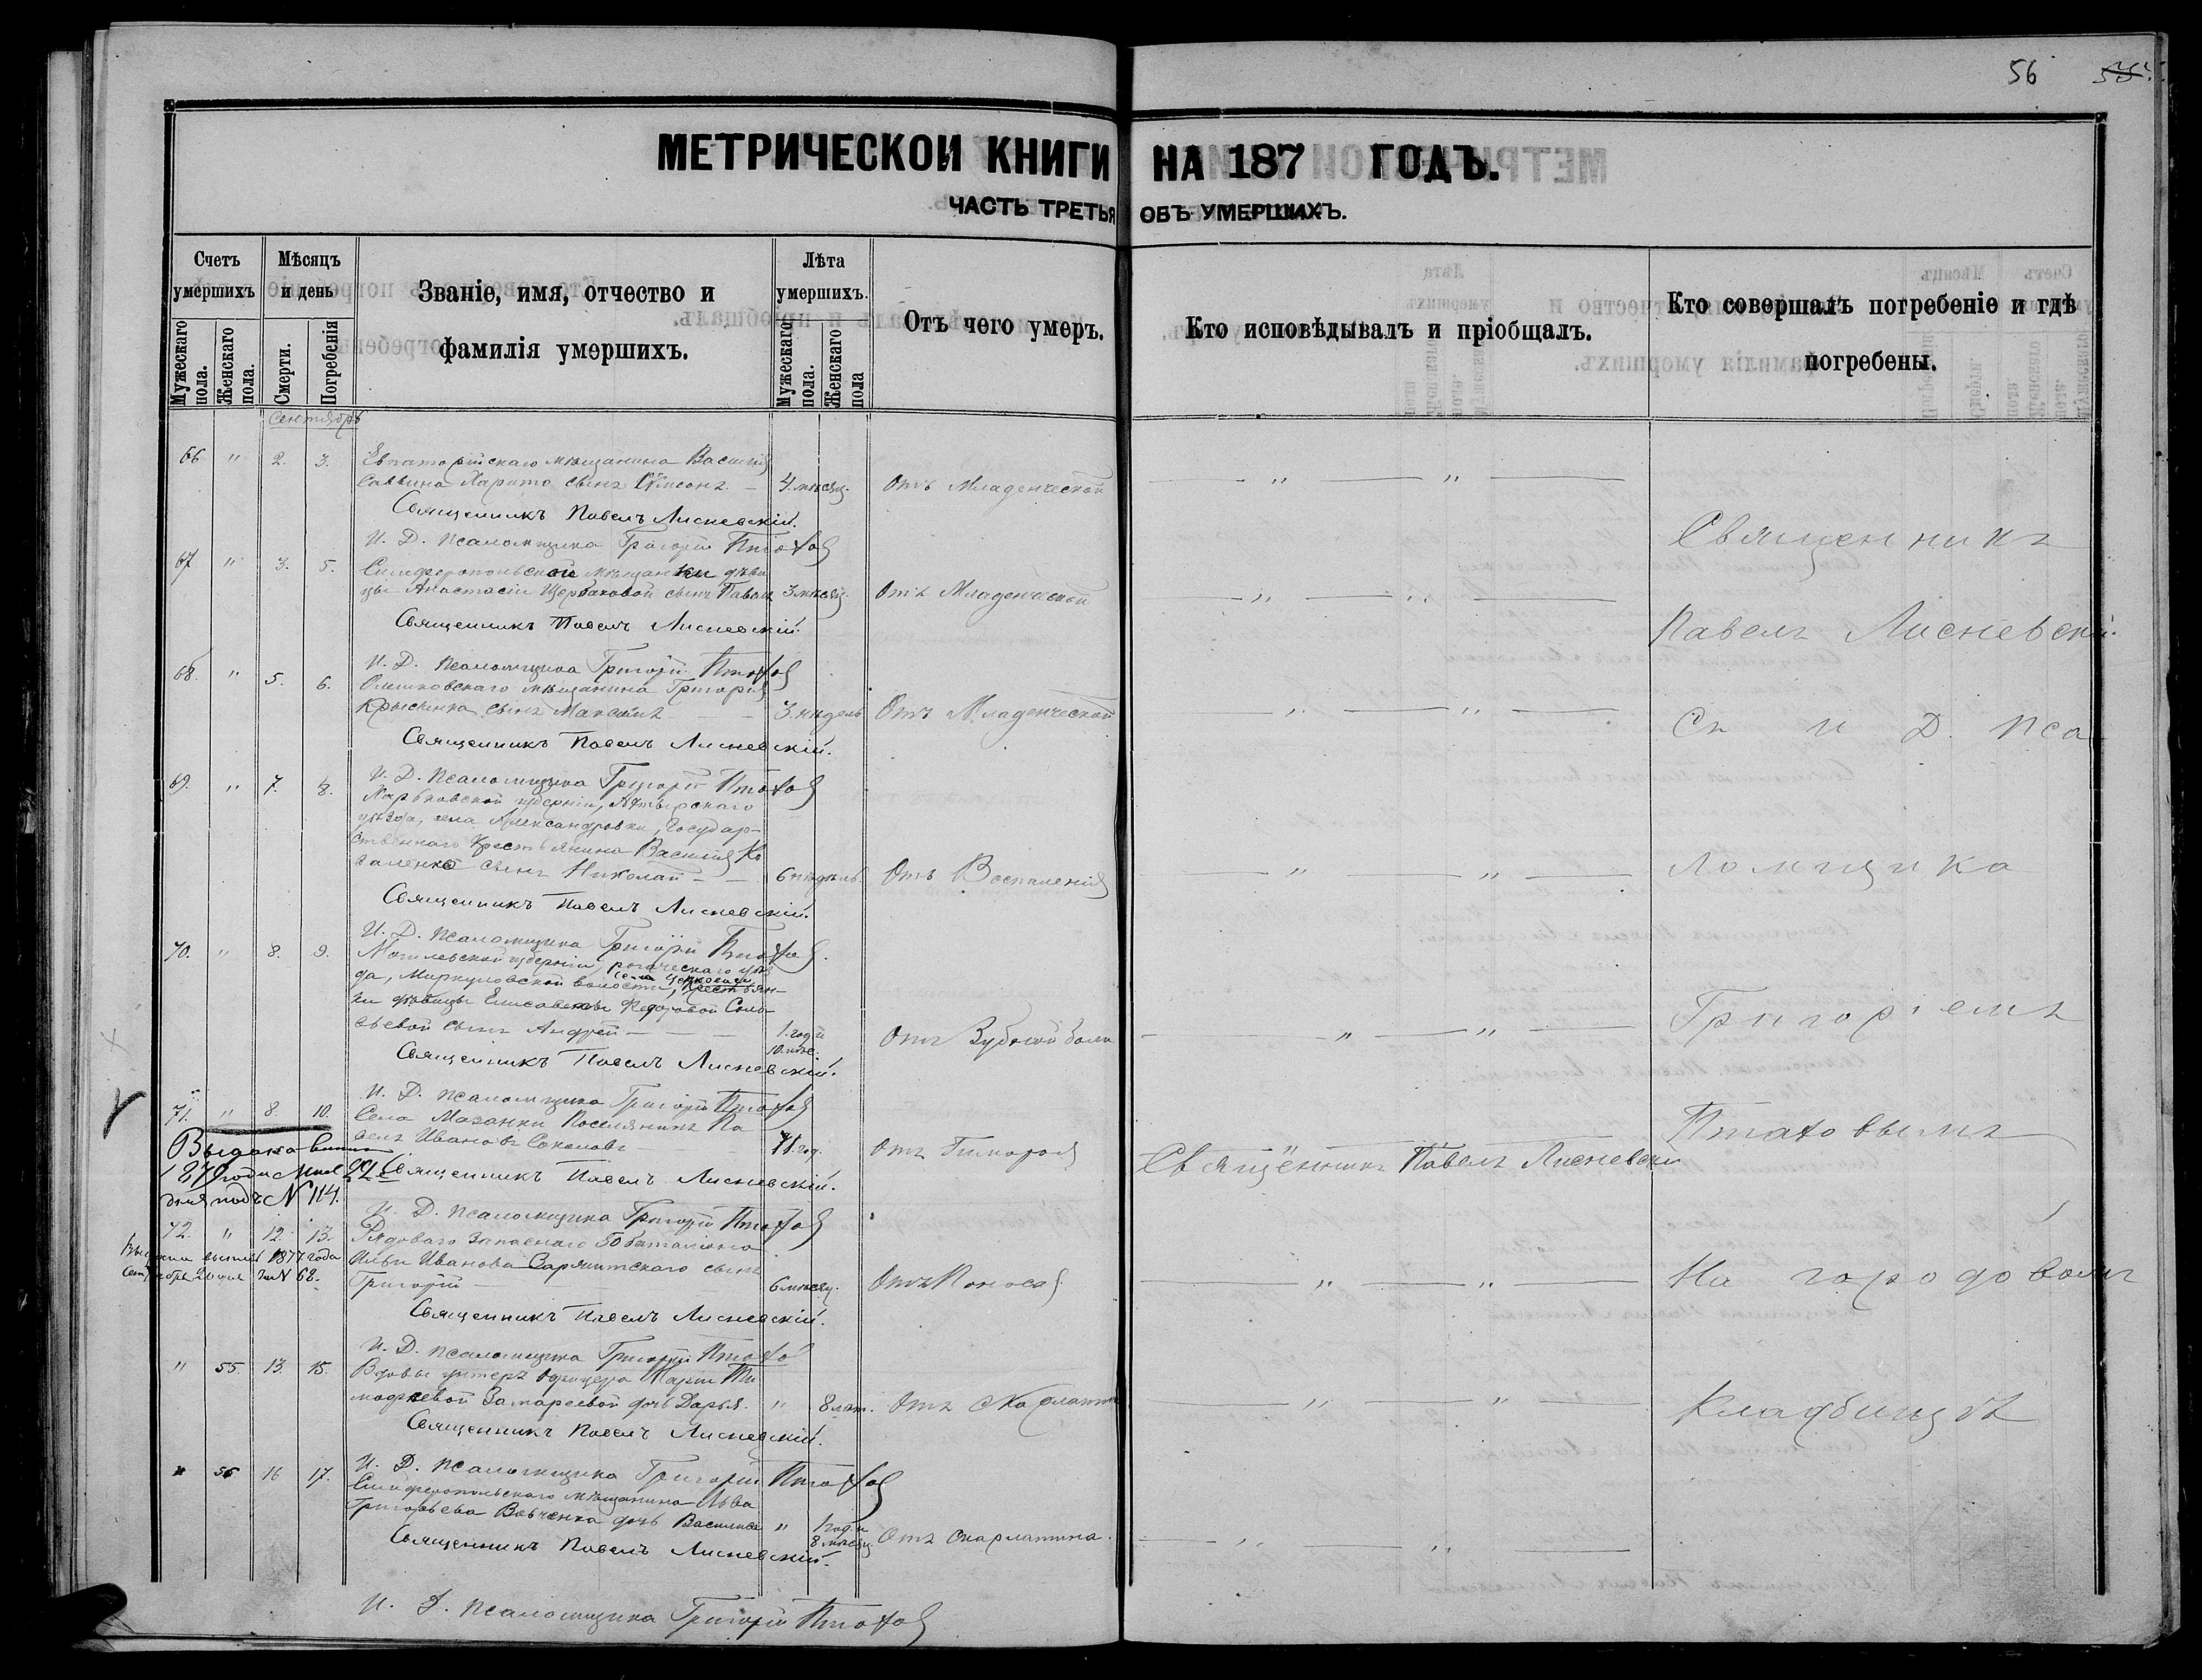 56 55
МЕТРИЧЕСКОЙ КНИГИ НА 187 ГОДЪ.
ЧАСТЬ ТРЕТЬЯ ОБЪ УМЕРШИХЪ.
Счетъ умершихъ
Мужескаго пола.
Женскаго пола.
Мѣсяцъ и день
Смерти.
Погребенія
Званіе, имя, отчество и фамилія умершихъ.
Лѣта умершихъ.
Мужескаго пола.
Женскаго пола
Отъ чего умеръ.
Кто исповѣдывалъ и пріобщалъ.
Кто совершалъ погребеніе и гдѣ погребены.
Сентябрь
66 " 2. 3. Евпаторійскаго мѣщанина Василія
Саввина Харито сынъ — 4. мѣсяц. Отъ Младенческой — " — " —
Священникъ Павелъ Лисневскій.
И. Д. Псаломщика Григорій Птахов
67 " 3. 5. Симферопольской мѣщанки дѣви
цы Анастасіи Щербаковой сынъ Павелъ 3 мѣсяц. Отъ Младенческой — " — " —
Священникъ Павелъ Лисневскій.
И. Д. Псаломщика Григорій Птахов
68. " 5. 6. Олешковскаго мѣщанина Григорія
сынъ Максимъ — — 3. недель Отъ Младенческой — " — " —
Священникъ Павелъ Лисневскій.
И. Д. Псаломщика Григорій Птахов
69. " 7. 8. Харьковской губерніи, Ахтырскаго
уѣзда, села Александровки, Государ-
ственнаго Крестьянина Василія Ко
валенко сынъ Николай — — 6 недѣль Отъ Воспаленія — " — " —
Священникъ Павелъ Лисневскій.
И. Д. Псаломщика Григорій Птахов.
70. " 8. 9. Могилевской губерніи, рогачевскаго уѣз
да, волости, села Крестьян-
ки дѣвицы Елисаветы Федоровой Соло
вьевой сынъ Андрей — — 1. годъ и 10. мѣс. Отъ Зубной боли — " — " —
Священникъ Павелъ Лисневскій.
И. Д. Псаломщика Григорій Птахов
71. " 8. 10. Села Мазанки Поселянинъ Па
велъ Ивановъ Соколовъ 71. год. Отъ Священникъ Павелъ Лисневскій
Выдана выпись
1879 года 22
дня подъ N 114.
Священникъ Павелъ Лисневскій.
И. Д. Псаломщика Григорій Птахов
72. " 12. 13. Рядоваго Запаснаго 50 баталіона
Ильи Иванова сынъ
Григорій — 6 мѣсяц. Отъ Поноса — " — " —
Выдана выпись 1877 года
Сентября 20 дня за N 68.
Священникъ Павелъ Лисневскій.
И. Д. Псаломщика Григорій Птахов
" 55. 13. 15. Вдовы унтеръ офицера Маріи Ти
мофеевой дочь Дарья. " 8 лѣт. Отъ Скарлатин — " — " —
Священникъ Павелъ Лисневскій.
И. Д. Псаломщика Григорій Птахов
" 56 16 17. Симферопольскаго мѣщанина Льва
Григорьева Вовченка дочь Василиса " 1 год. и 8 мѣсяц. Отъ Скарлатина. — " — " —
Священникъ Павелъ Лисневскій.
И. Д. Псаломщика Григорій Птахов
Священникъ
Павелъ Лисневскій.
Съ И Д. Пса
ломщика
Григоріемъ
Птаховымъ
На городовомъ
Кладбищѣ